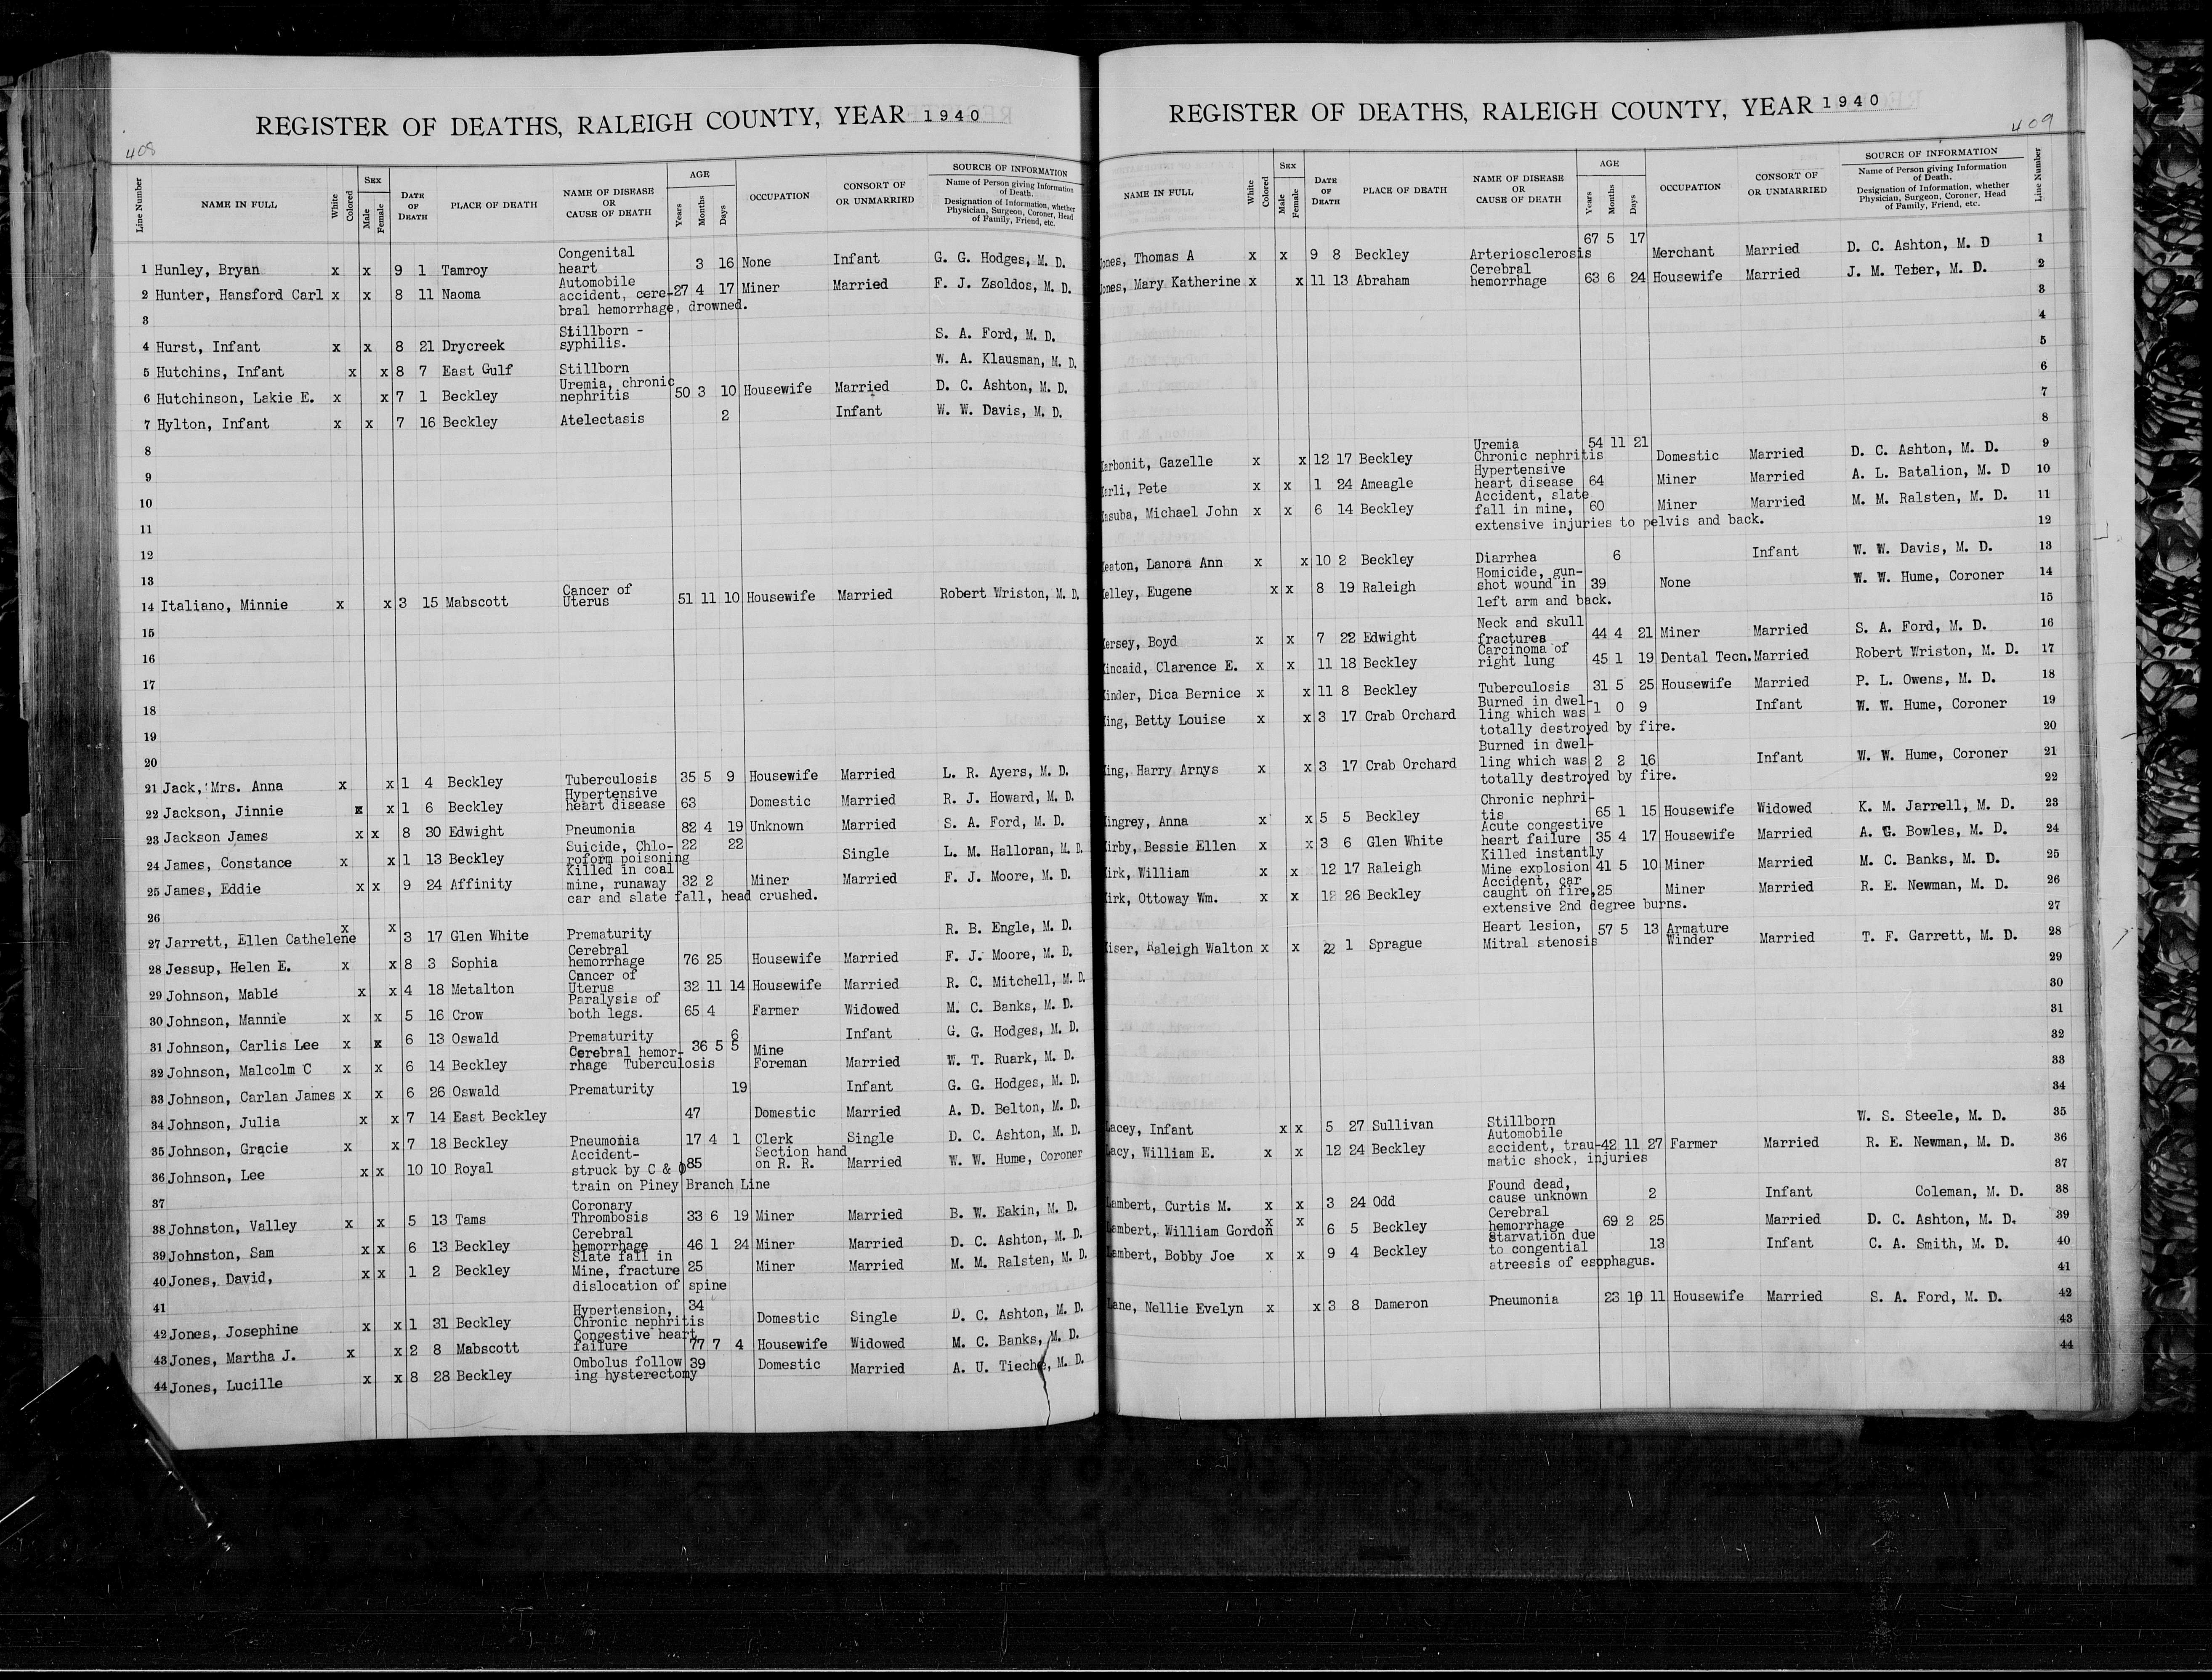 REGISTER OF DEATHS, RALEIGH COUNTY, YEAR 1940
408
Line Number NAME IN FULL White Colored SEX Male Female DATE OF DEATH PLACE OF DEATH NAME OF DISEASE OR CAUSE OF DEATH AGE Years Months Days OCCUPATION CONSORT OF OR UNMARRIED SOURCE OF INFORMATION Name of Person giving Information of Death. Designation of Information, whether Physician, Surgeon, Coroner, Head of Family, Friend, etc.
1 Hunley, Bryan x x 9 1 Tamroy Congenital heart 3 16 None Infant G. G. Hodges, M. D.
2 Hunter, Hansford Carl x x 8 11 Naoma Automobile accident, cere- 27 4 17 Miner Married F. J. Zsoldos, M. D.
3 bral hemorrhage, drowned.
4 Hurst, Infant x x 8 21 Drycreek Stillborn - syphilis. S. A. Ford, M. D.
5 Hutchins, Infant x x 8 7 East Gulf Stillborn W. A. Klausman, M. D.
6 Hutchinson, Lakie E. x x 7 1 Beckley Uremia, chronic nephritis 50 3 10 Housewife Married D. C. Ashton, M. D.
7 Hylton, Infant x x 7 16 Beckley Atelectasis 2 Infant W. W. Davis, M. D.
8
9
10
11
12
13
14 Italiano, Minnie x x 3 15 Mabscott Cancer of Uterus 51 11 10 Housewife Married Robert Wriston, M. D.
15
16
17
18
19
20
21 Jack, Mrs. Anna x x 1 4 Beckley Tuberculosis 35 5 9 Housewife Married L. R. Ayers, M. D.
22 Jackson, Jinnie x x 1 6 Beckley Hypertensive heart disease 63 Domestic Married R. J. Howard, M. D.
23 Jackson James x x 8 30 Edwight Pneumonia 82 4 19 Unknown Married S. A. Ford, M. D.
24 James, Constance x x 1 13 Beckley Suicide, Chlo- roform poisoning 22 22 Single L. M. Halloran, M. D.
25 James, Eddie x x 9 24 Affinity Killed in coal mine, runaway 32 2 Miner Married F. J. Moore, M. D.
26 car and slate fall, head crushed.
27 Jarrett, Ellen Cathelene x x 3 17 Glen White Prematurity R. B. Engle, M. D.
28 Jessup, Helen E. x x 8 3 Sophia Cerebral hemorrhage 76 25 Housewife Married F. J. Moore, M. D.
29 Johnson, Mable x x 4 18 Metalton Cancer of Uterus 32 11 14 Housewife Married R. C. Mitchell, M. D.
30 Johnson, Mannie x x 5 16 Crow Paralysis of both legs. 65 4 Farmer Widowed M. C. Banks, M. D.
31 Johnson, Carlis Lee x x 6 13 Oswald Prematurity 6 Infant G. G. Hodges, M. D.
32 Johnson, Malcolm C x x 6 14 Beckley Cerebral hemor- rhage Tuberculosis 36 5 5 Mine Foreman Married W. T. Ruark, M. D.
33 Johnson, Carlan James x x 6 26 Oswald Prematurity 19 Infant G. G. Hodges, M. D.
34 Johnson, Julia x x 7 14 East Beckley 47 Domestic Married A. D. Belton, M. D.
35 Johnson, Gracie x x 7 18 Beckley Pneumonia 17 4 1 Clerk Single D. C. Ashton, M. D.
36 Johnson, Lee x x 10 10 Royal Accident- struck by C & O 85 Section hand on R. R. Married W. W. Hume, Coroner
37 train on Piney Branch Line
38 Johnston, Valley x x 5 13 Tams Coronary Thrombosis 33 6 19 Miner Married B. W. Eakin, M. D.
39 Johnston, Sam x x 6 13 Beckley Cerebral hemorrhage 46 1 24 Miner Married D. C. Ashton, M. D.
40 Jones, David, x x 1 2 Beckley Slate fall in Mine, fracture 25 Miner Married M. M. Ralsten, M. D.
41 dislocation of spine
42 Jones, Josephine x x 1 31 Beckley Hypertension, Chronic nephritis 34 Domestic Single D. C. Ashton, M. D.
43 Jones, Martha J. x x 2 8 Mabscott Congestive heart failure 77 7 4 Housewife Widowed M. C. Banks, M. D.
44 Jones, Lucille x x 8 28 Beckley Ombolus follow ing hysterectomy 39 Domestic Married A. U. Tieche, M. D.
REGISTER OF DEATHS, RALEIGH COUNTY, YEAR 1940
409
NAME IN FULL White Colored SEX Male Female DATE OF DEATH PLACE OF DEATH NAME OF DISEASE OR CAUSE OF DEATH AGE Years Months Days OCCUPATION CONSORT OF OR UNMARRIED SOURCE OF INFORMATION Name of Person giving Information of Death. Designation of Information, whether Physician, Surgeon, Coroner, Head of Family, Friend, etc. Line Number
ones, Thomas A x x 9 8 Beckley Arteriosclerosis 67 5 17 Merchant Married D. C. Ashton, M. D 1
ones, Mary Katherine x x 11 13 Abraham Cerebral hemorrhage 63 6 24 Housewife Married J. M. Teter, M. D. 2
3
4
5
6
7
8
arbonit, Gazelle x x 12 17 Beckley Uremia Chronic nephritis 54 11 21 Domestic Married D. C. Ashton, M. D. 9
arli, Pete x x 1 24 Ameagle Hypertensive heart disease 64 Miner Married A. L. Batalion, M. D 10
asuba, Michael John x x 6 14 Beckley Accident, slate fall in mine, 60 Miner Married M. M. Ralsten, M. D. 11
extensive injuries to pelvis and back. 12
eaton, Lanora Ann x x 10 2 Beckley Diarrhea 6 Infant W. W. Davis, M. D. 13
elley, Eugene x x 8 19 Raleigh Homicide, gun- shot wound in 39 None W. W. Hume, Coroner 14
left arm and back. 15
ersey, Boyd x x 7 22 Edwight Neck and skull fractures 44 4 21 Miner Married S. A. Ford, M. D. 16
incaid, Clarence E. x x 11 18 Beckley Carcinoma of right lung 45 1 19 Dental Tecn. Married Robert Wriston, M. D. 17
inder, Dica Bernice x x 11 8 Beckley Tuberculosis 31 5 25 Housewife Married P. L. Owens, M. D. 18
ing, Betty Louise x x 3 17 Crab Orchard Burned in dwel- ling which was 1 0 9 Infant W. W. Hume, Coroner 19
totally destroyed by fire. 20
ing, Harry Arnys x x 3 17 Crab Orchard Burned in dwel- ling which was 2 2 16 Infant W. W. Hume, Coroner 21
totally destroyed by fire. 22
ingrey, Anna x x 5 5 Beckley Chronic nephri- tis 65 1 15 Housewife Widowed K. M. Jarrell, M. D. 23
irby, Bessie Ellen x x 3 6 Glen White Acute congestive heart failure 35 4 17 Housewife Married A. G. Bowles, M. D. 24
irk, William x x 12 17 Raleigh Killed instantly Mine explosion 41 5 10 Miner Married M. C. Banks, M. D. 25
irk, Ottoway Wm. x x 12 26 Beckley Accident, car caught on fire, 25 Miner Married R. E. Newman, M. D. 26
extensive 2nd degree burns. 27
iser, Raleigh Walton x x 2 1 Sprague Heart lesion, Mitral stenosis 57 5 13 Armature Winder Married T. F. Garrett, M. D. 28
29
30
31
32
33
34
Lacey, Infant x x 5 27 Sullivan Stillborn W. S. Steele, M. D. 35
Lacy, William E. x x 12 24 Beckley Automobile accident, trau- 42 11 27 Farmer Married R. E. Newman, M. D. 36
matic shock, injuries 37
Lambert, Curtis M. x x 3 24 Odd Found dead, cause unknown 2 Infant Coleman, M. D. 38
Lambert, William Gordon x x 6 5 Beckley Cerebral hemorrhage 69 2 25 Married D. C. Ashton, M. D. 39
Lambert, Bobby Joe x x 9 4 Beckley Starvation due to congential 13 Infant C. A. Smith, M. D. 40
atreesis of esophagus. 41
Lane, Nellie Evelyn x x 3 8 Dameron Pneumonia 23 10 11 Housewife Married S. A. Ford, M. D. 42
43
44